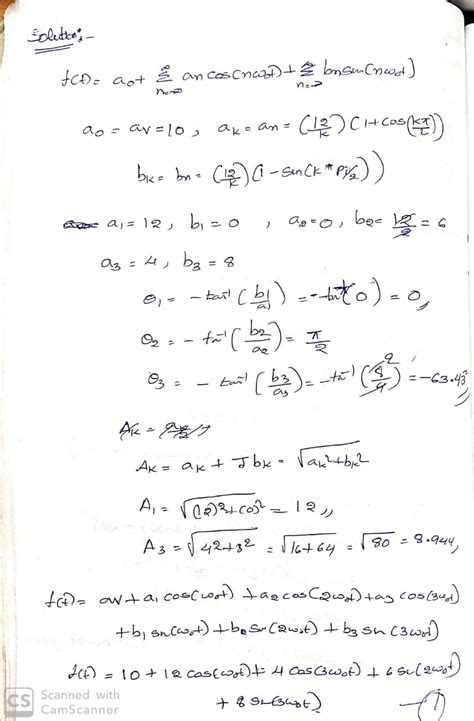 Solution:-
f(t) = a0 + Σ an cos(nω0t) + Σ bn sin(nω0t)
a0 = av = 10, ak = an = (12/k)(1+cos(kπ/2))
bk = bn = (12/k)(1-sin(k*pi/2))
a1 = 12, b1 = 0, a2 = 0, b2 = 12/2 = 6
a3 = 4, b3 = 8
θ1 = -tan⁻¹(b1/a1) = -tan⁻¹(0) = 0,
θ2 = -tan⁻¹(b2/a2) = π/2
θ3 = -tan⁻¹(b3/a3) = -tan⁻¹(8/4) = -63.43
Ak = ak + Jbk = √ak²+bk²
A1 = √(12)²+(0)² = 12,,
A3 = √4²+8² = √16+64 = √80 = 8.944,,
f(t) = av + a1 cos(ω0t) + a2 cos(2ω0t) + a3 cos(3ω0t)
+ b1 sin(ω0t) + b2 sin(2ω0t) + b3 sin(3ω0t)
f(t) = 10 + 12 cos(ω0t) + 4 cos(3ω0t) + 6 sin(2ω0t)
+ 8 sin(3ω0t) —(1)
CS Scanned with
CamScanner